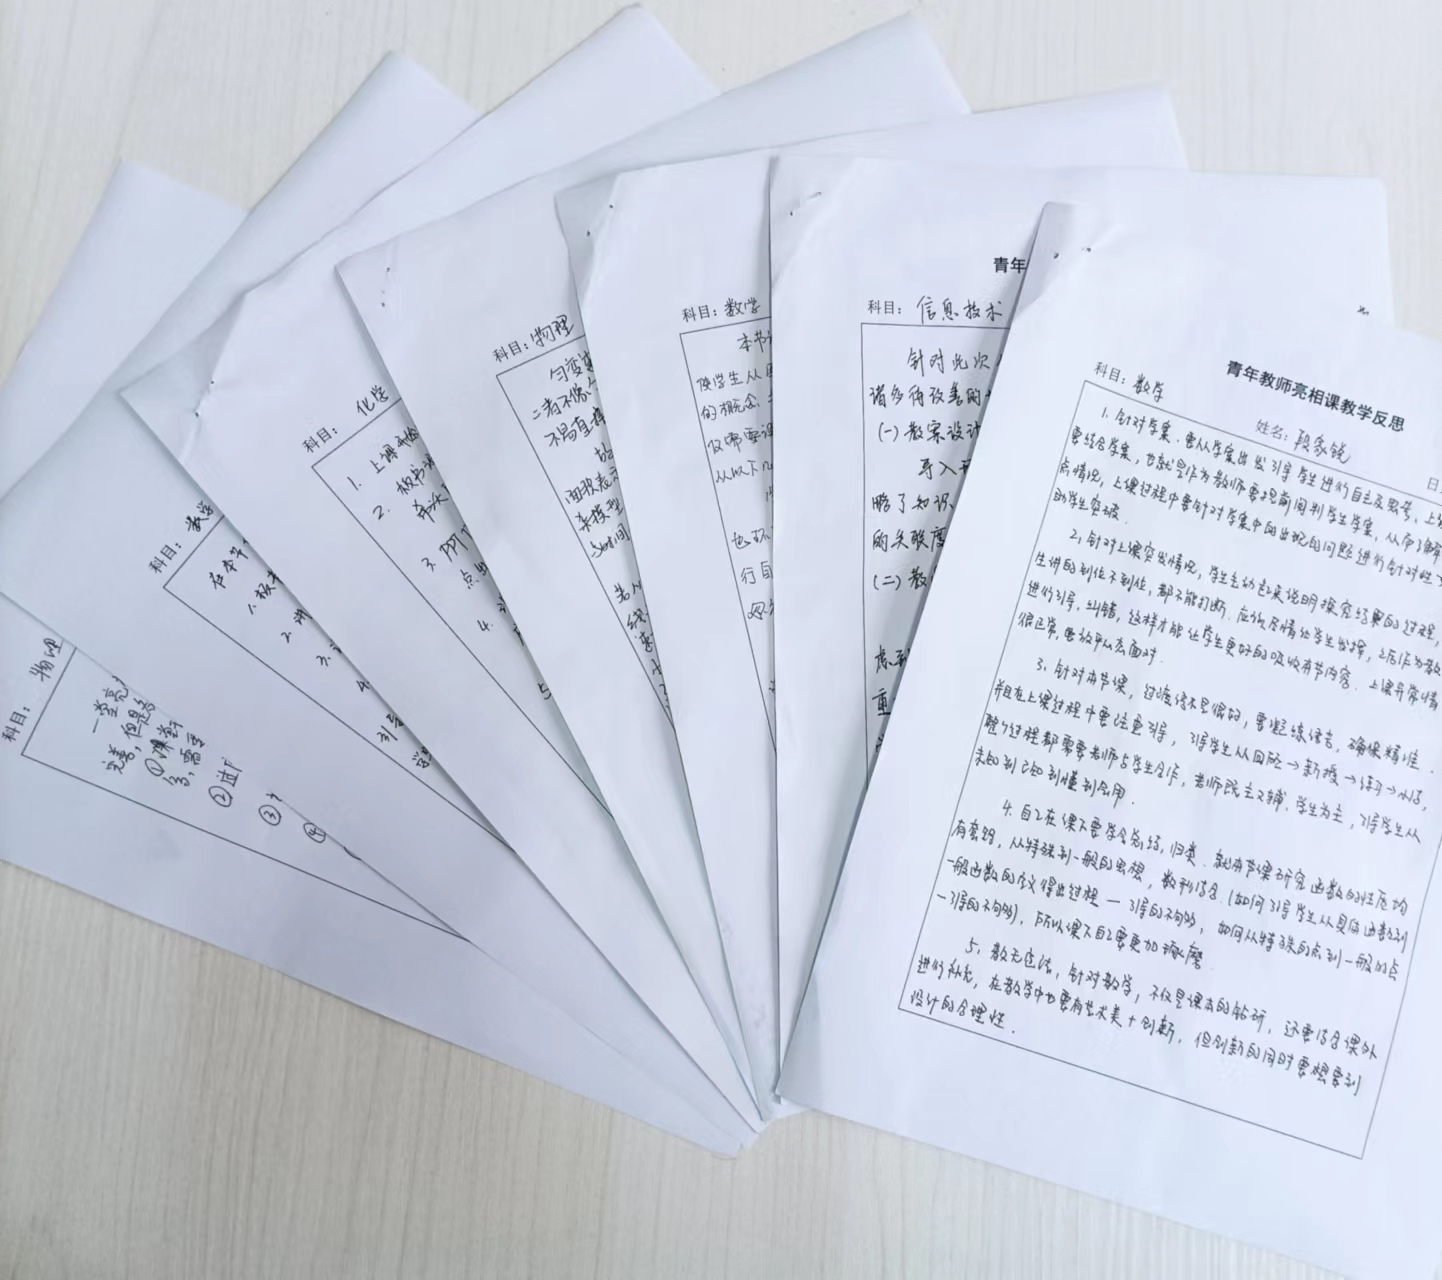 科目：物理
一堂亮
完善，但是
①课堂
多，需要
②过
③
④
科目：数学
在本节
1. 板书
2. 讲
3.
4.
科目：化学
1. 上课
2. 板书
3. PPT
点
4.
5
科目：物理
匀变速
二者不像
不易直接
故
面积表示
杂模型
科目：数学
本节
使学生从
的概念
仅需要
从以下几
也
行自
青年
科目：信息技术
针对此次
诸多待改善的
（一）教案设计
导入
略了知识
的关联度
（二）教
虑到
重
青年教师亮相课教学反思
科目：数学
姓名：段家锐
日
1. 针对学案，要从学案出发引导学生进行自主及思考，上
要结合学案，也就是作为教师要提前阅判学生学案，从而了解
点情况，上课过程中要针对学案中的出现的问题进行针对性
助学生突破．
2，针对上课突发情况，学生主动起来说明探究结果的过程，
生讲的到位不到位，都不能打断．应该尽情让学生发挥，之后作为教
进行引导，纠错，这样才能让学生更好的吸收本节内容．上课异常情
很正常，要放平心态面对．
3，针对本节课，过渡语不是很好，要凝练语言，确保精准．
并且在上课过程中要注重引导，引导学生从回顾→新授→练习→小结，
整个过程都需要老师与学生合作，老师既主又辅，学生为主，引导学生从
未知到已知到懂到会用．
4. 自己在课下要学会总结，归类．就本节课研究函数的性质均
有套路，从特殊到一般的思想，数形结合．（如何引导学生从具体函数到
一般函数的含义得出过程一引导的不够，如何从特殊的点到一般的点
一引导的不够），所以课下自己要更加琢磨．
5，教无定法，针对教学，不仅是课本的钻研，还要结合课外
进行补充，在教学中也要有艺术美+创新，但创新的同时要想要到
设计的合理性．